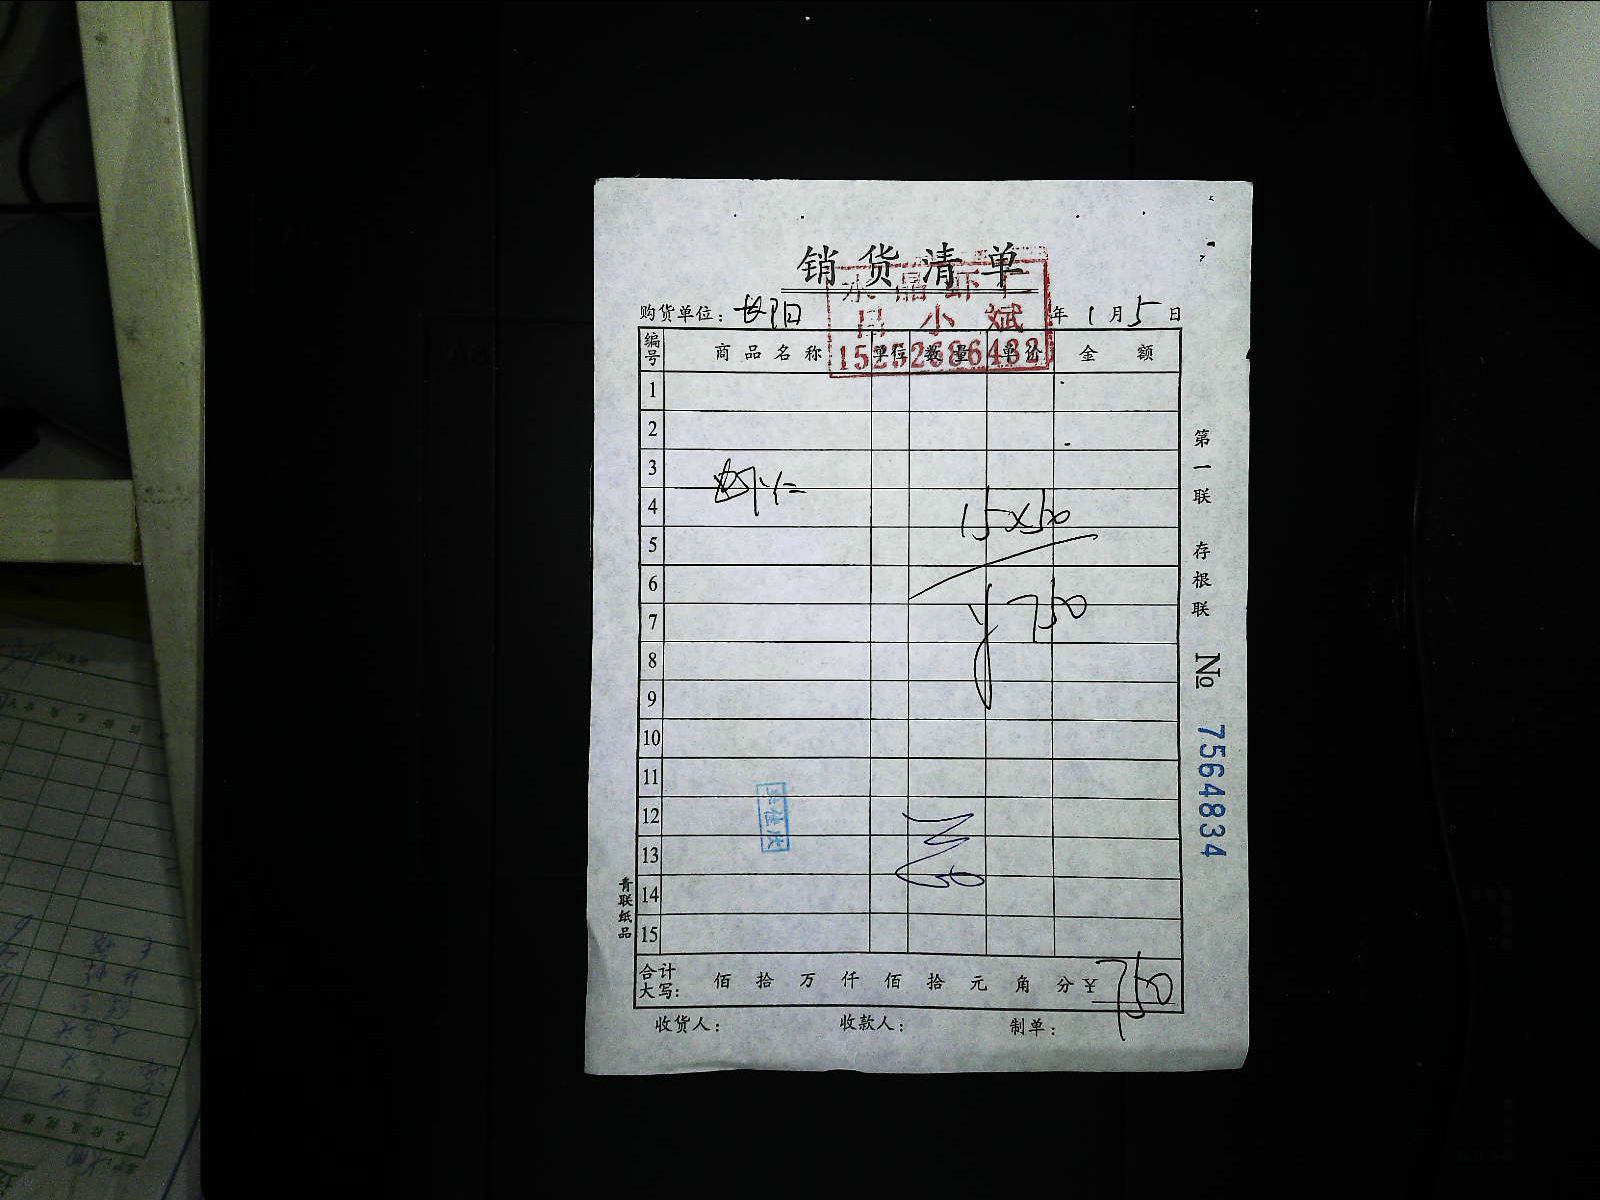 销货清单
水晶虾仁
吕小斌
15252686432
购货单位: 年 1 月 5 日
编号 商品名称 单位 数量 单价 金额
1
2
3
虾仁
4
15×50
5
6
¥750
7
8
9
10
11
12
13
14
15
合计大写: 佰 拾 万 仟 佰 拾 元 角 分 ¥ 750
收货人: 收款人: 制单:
第一联 存根联
№ 7564834
青联纸品